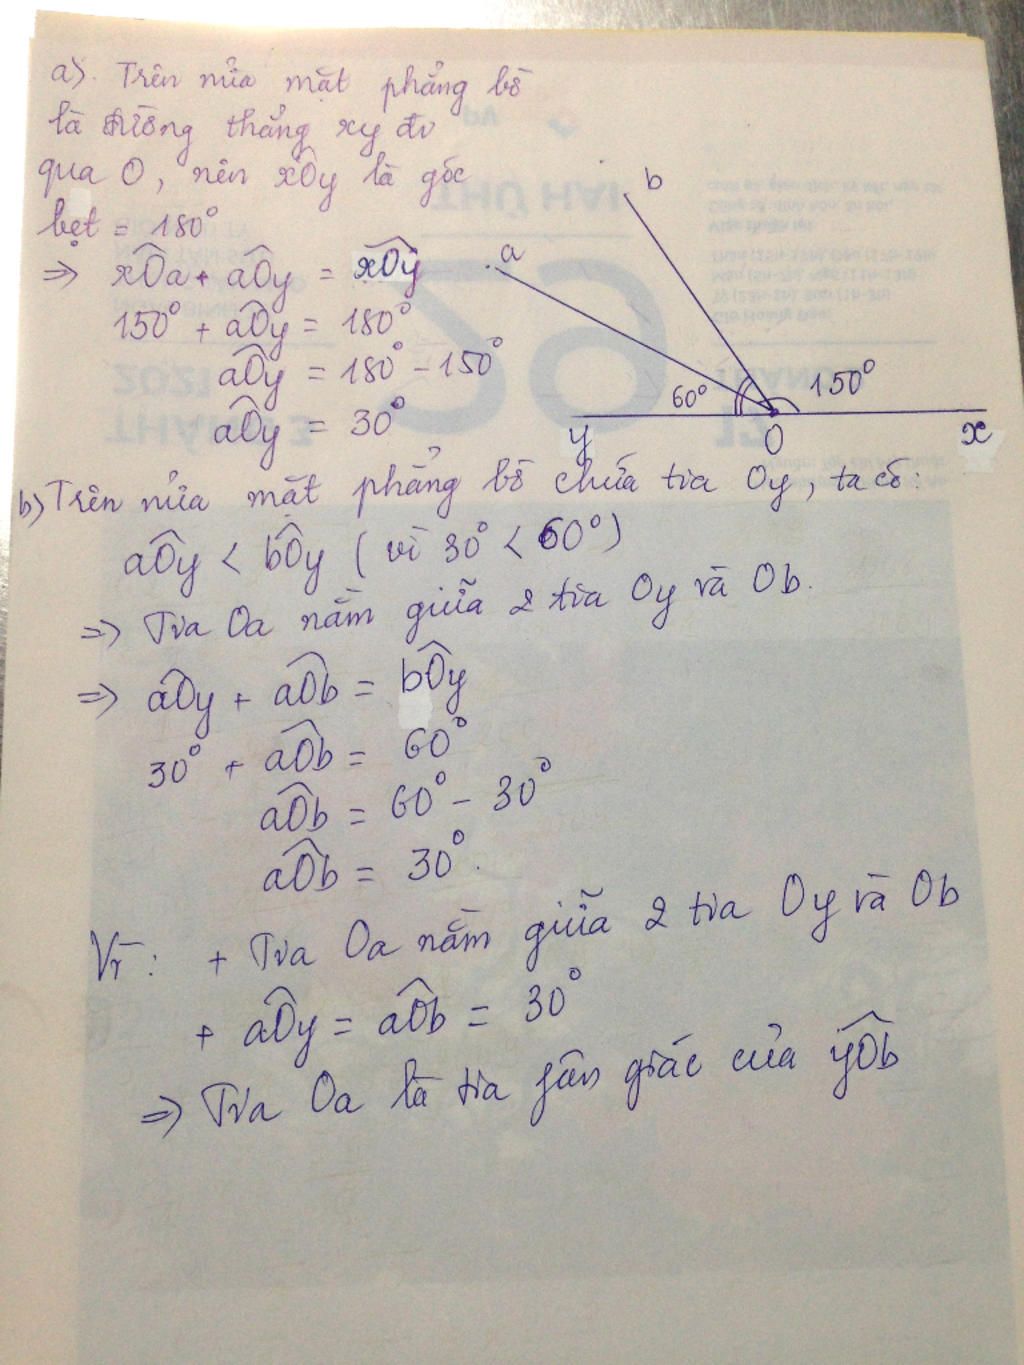 a). Trên nửa mặt phẳng bờ
là đường thẳng xy đi
qua O, nên xOy là góc
bẹt = 180°
⇒ xOa + aOy = xOy
150° + aOy = 180°
aOy = 180° - 150°
aOy = 30°
b
a
60°
150°
y
O
x
b) Trên nửa mặt phẳng bờ chứa tia Oy, ta có:
aOy < bOy (vì 30° < 60°)
⇒ Tia Oa nằm giữa 2 tia Oy và Ob.
⇒ aOy + aOb = bOy
30° + aOb = 60°
aOb = 60° - 30°
aOb = 30°.
Vì: + Tia Oa nằm giữa 2 tia Oy và Ob
+ aOy = aOb = 30°
⇒ Tia Oa là tia phân giác của yOb